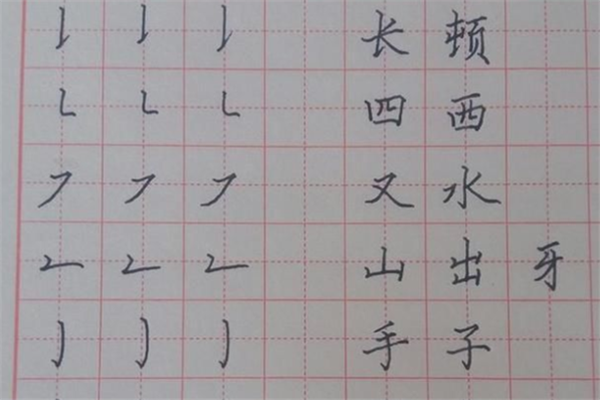 长 顿
四 西
又 水
山 出 牙
手 子